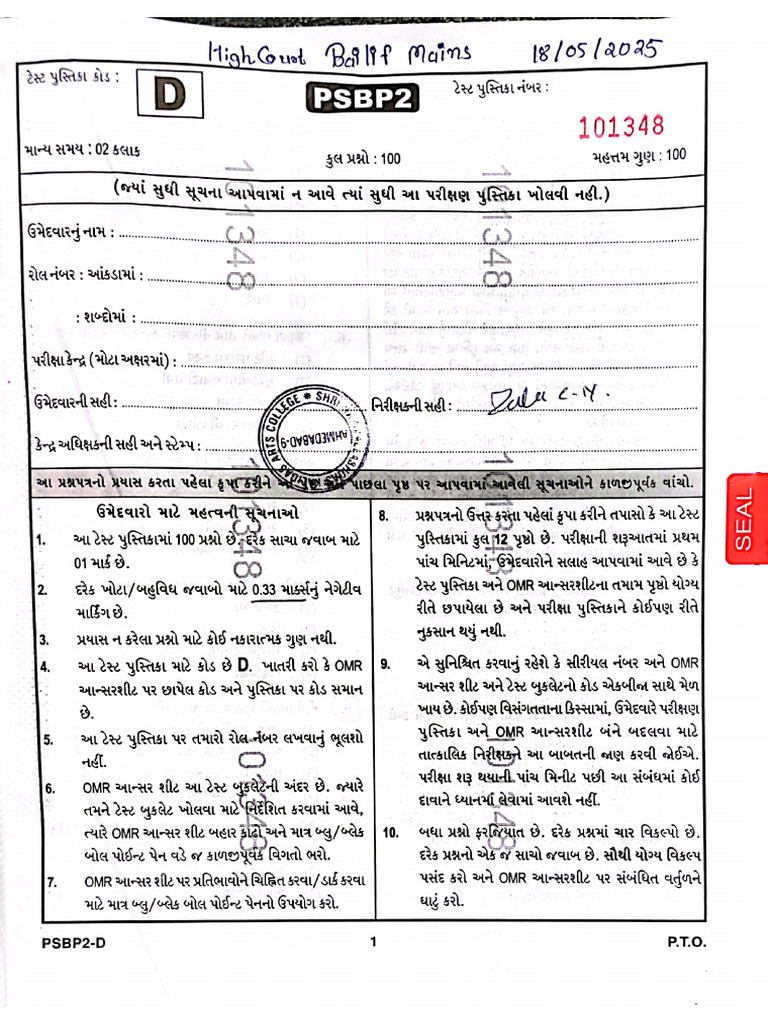 High Court Bailif Mains 18/05/2025
ટેસ્ટ પુસ્તિકા કોડ :
D
PSBP2
ટેસ્ટ પુસ્તિકા નંબર :
101348
માન્ય સમય : 02 કલાક
કુલ પ્રશ્નો : 100
મહત્તમ ગુણ : 100
(જ્યાં સુધી સૂચના આપવામાં ન આવે ત્યાં સુધી આ પરીક્ષણ પુસ્તિકા ખોલવી નહી.)
ઉમેદવારનું નામ :
રોલ નંબર : આંકડામાં :
: શબ્દોમાં :
પરીક્ષા કેન્દ્ર (મોટા અક્ષરમાં) :
ઉમેદવારની સહી :
નિરીક્ષકની સહી :
કેન્દ્ર અધિક્ષકની સહી અને સ્ટેમ્પ :
ARTS COLLEGE * SHRI
AHMEDABAD-9
101348
101348
આ પ્રશ્નપત્રનો પ્રયાસ કરતા પહેલા કૃપા કરીને પાછલા પૃષ્ઠ પર આપવામાં આવેલી સૂચનાઓને કાળજીપૂર્વક વાંચો.
ઉમેદવારો માટે મહત્વની સૂચનાઓ
1. આ ટેસ્ટ પુસ્તિકામાં 100 પ્રશ્નો છે. દરેક સાચા જવાબ માટે
01 માર્ક છે.
2. દરેક ખોટા/બહુવિધ જવાબો માટે 0.33 માર્ક્સનું નેગેટીવ
માર્કિંગ છે.
3. પ્રયાસ ન કરેલા પ્રશ્નો માટે કોઈ નકારાત્મક ગુણ નથી.
4. આ ટેસ્ટ પુસ્તિકા માટે કોડ છે D. ખાતરી કરો કે OMR
આન્સરશીટ પર છાપેલ કોડ અને પુસ્તિકા પર કોડ સમાન
છે.
5. આ ટેસ્ટ પુસ્તિકા પર તમારો રોલ નંબર લખવાનું ભૂલશો
નહીં.
6. OMR આન્સર શીટ આ ટેસ્ટ બુકલેટની અંદર છે. જ્યારે
તમને ટેસ્ટ બુકલેટ ખોલવા માટે નિર્દેશિત કરવામાં આવે,
ત્યારે OMR આન્સર શીટ બહાર કાઢો અને માત્ર બ્લુ/બ્લેક
બોલ પોઈન્ટ પેન વડે જ કાળજીપૂર્વક વિગતો ભરો.
7. OMR આન્સર શીટ પર પ્રતિભાવોને ચિહ્નિત કરવા/ડાર્ક કરવા
માટે માત્ર બ્લુ/બ્લેક બોલ પોઈન્ટ પેનનો ઉપયોગ કરો.
8. પ્રશ્નપત્રનો ઉત્તર કરતા પહેલાં કૃપા કરીને તપાસો કે આ ટેસ્ટ
પુસ્તિકામાં કુલ 12 પૃષ્ઠો છે. પરીક્ષાની શરૂઆતમાં પ્રથમ
પાંચ મિનિટમાં, ઉમેદવારોને સલાહ આપવામાં આવે છે કે
ટેસ્ટ પુસ્તિકા અને OMR આન્સરશીટના તમામ પૃષ્ઠો યોગ્ય
રીતે છપાયેલા છે અને પરીક્ષા પુસ્તિકાને કોઈપણ રીતે
નુકસાન થયું નથી.
9. એ સુનિશ્ચિત કરવાનું રહેશે કે સીરીયલ નંબર અને OMR
આન્સર શીટ અને ટેસ્ટ બુકલેટનો કોડ એકબીજા સાથે મેળ
ખાય છે. કોઈપણ વિસંગતતાના કિસ્સામાં, ઉમેદવારે પરીક્ષણ
પુસ્તિકા અને OMR આન્સરશીટ બંને બદલવા માટે
તાત્કાલિક નિરીક્ષકને આ બાબતની જાણ કરવી જોઈએ.
પરીક્ષા શરૂ થયાની પાંચ મિનીટ પછી આ સંબંધમાં કોઈ
દાવાને ધ્યાનમાં લેવામાં આવશે નહીં.
10. બધા પ્રશ્નો ફરજિયાત છે. દરેક પ્રશ્નમાં ચાર વિકલ્પો છે.
દરેક પ્રશ્નનો એક જ સાચો જવાબ છે. સૌથી યોગ્ય વિકલ્પ
પસંદ કરો અને OMR આન્સરશીટ પર સંબંધિત વર્તુળને
ઘાટું કરો.
SEAL
PSBP2-D
1
P.T.O.